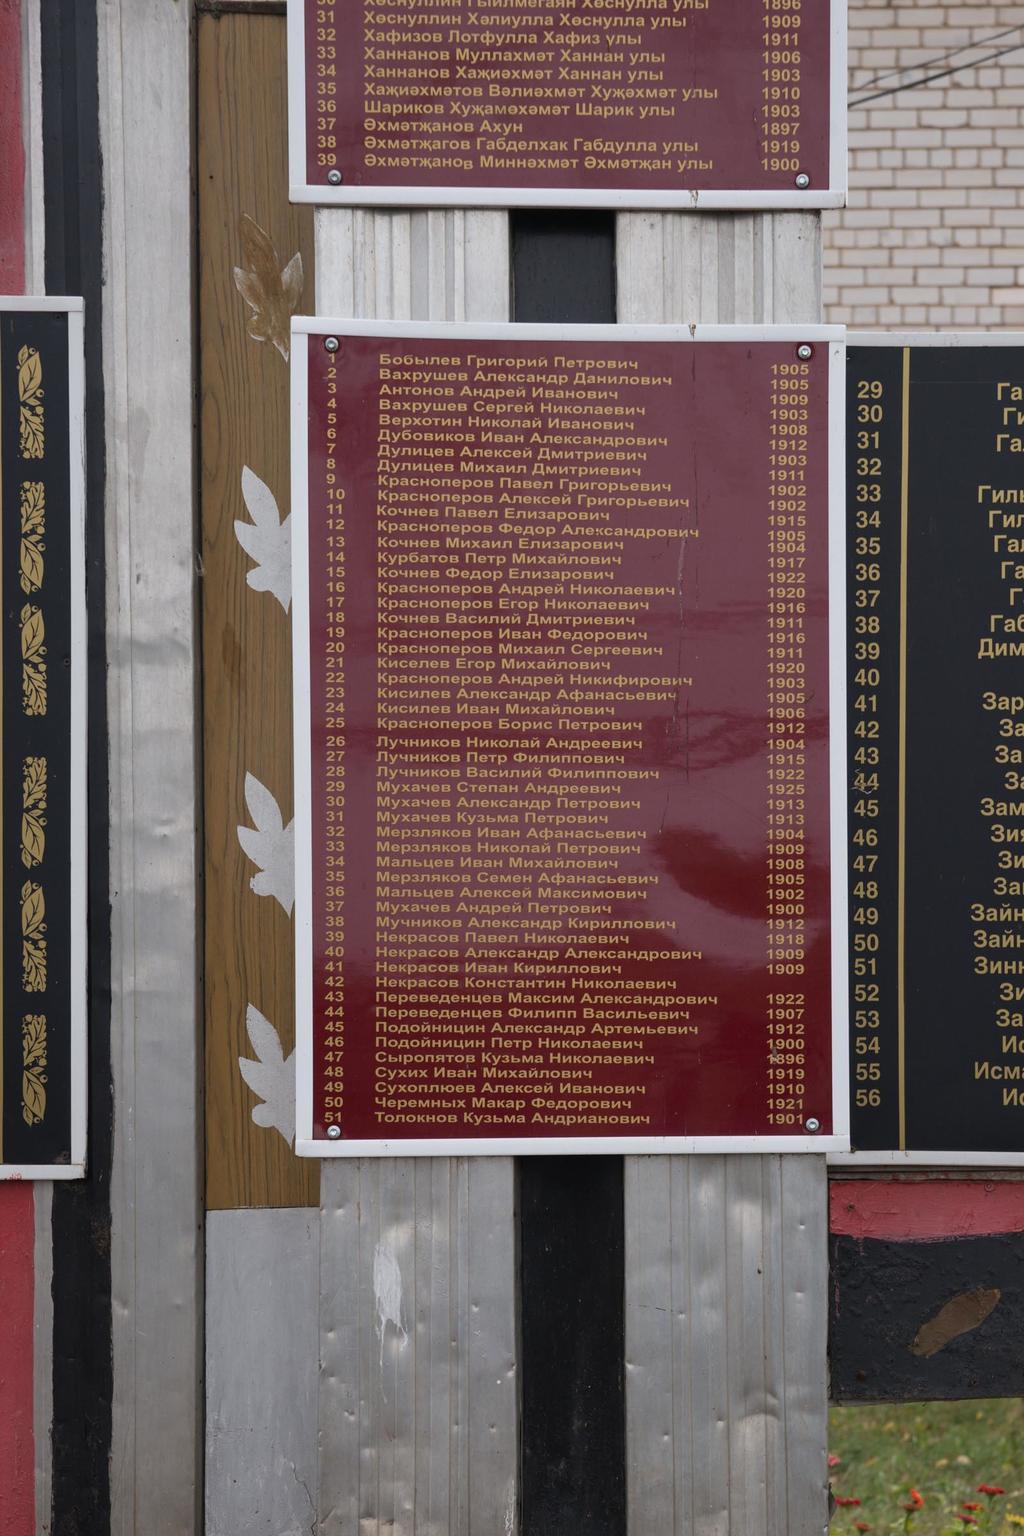 31 Хөснуллин Хәлиулла Хөснулла улы 1909
32 Хафизов Лотфулла Хафиз улы 1911
33 Ханнанов Муллахмәт Ханнан улы 1906
34 Ханнанов Хаҗиәхмәт Ханнан улы 1903
35 Хаҗиәхмәтов Вәлиәхмәт Хуҗәхмәт улы 1910
36 Шариков Хуҗамөхәмәт Шарик улы 1903
37 Әхмәтҗанов Ахун 1897
38 Әхмәтҗагов Габделхак Габдулла улы 1919
39 Әхмәтҗанов Миннәхмәт Әхмәтҗан улы 1900
1 Бобылев Григорий Петрович 1905
2 Вахрушев Александр Данилович 1905
3 Антонов Андрей Иванович 1909
4 Вахрушев Сергей Николаевич 1903
5 Верхотин Николай Иванович 1908
6 Дубовиков Иван Александрович 1912
7 Дулицев Алексей Дмитриевич 1903
8 Дулицев Михаил Дмитриевич 1911
9 Красноперов Павел Григорьевич 1902
10 Красноперов Алексей Григорьевич 1902
11 Кочнев Павел Елизарович 1915
12 Красноперов Федор Александрович 1905
13 Кочнев Михаил Елизарович 1904
14 Курбатов Петр Михайлович 1917
15 Кочнев Федор Елизарович 1922
16 Красноперов Андрей Николаевич 1920
17 Красноперов Егор Николаевич 1916
18 Кочнев Василий Дмитриевич 1911
19 Красноперов Иван Федорович 1916
20 Красноперов Михаил Сергеевич 1911
21 Киселев Егор Михайлович 1920
22 Красноперов Андрей Никифирович 1903
23 Кисилев Александр Афанасьевич 1905
24 Кисилев Иван Михайлович 1906
25 Красноперов Борис Петрович 1912
26 Лучников Николай Андреевич 1904
27 Лучников Петр Филиппович 1915
28 Лучников Василий Филиппович 1922
29 Мухачев Степан Андреевич 1925
30 Мухачев Александр Петрович 1913
31 Мухачев Кузьма Петрович 1913
32 Мерзляков Иван Афанасьевич 1904
33 Мерзляков Николай Петрович 1909
34 Мальцев Иван Михайлович 1908
35 Мерзляков Семен Афанасьевич 1905
36 Мальцев Алексей Максимович 1902
37 Мухачев Андрей Петрович 1900
38 Мучников Александр Кириллович 1912
39 Некрасов Павел Николаевич 1918
40 Некрасов Александр Александрович 1909
41 Некрасов Иван Кириллович 1909
42 Некрасов Константин Николаевич
43 Переведенцев Максим Александрович 1922
44 Переведенцев Филипп Васильевич 1907
45 Подойницин Александр Артемьевич 1912
46 Подойницин Петр Николаевич 1900
47 Сыропятов Кузьма Николаевич 1896
48 Сухих Иван Михайлович 1919
49 Сухоплюев Алексей Иванович 1910
50 Черемных Макар Федорович 1921
51 Толокнов Кузьма Андрианович 1901
29
30
31
32
33
34
35
36
37
38
39
40
41
42
43
44
45
46
47
48
49
50
51
52
53
54
55
56